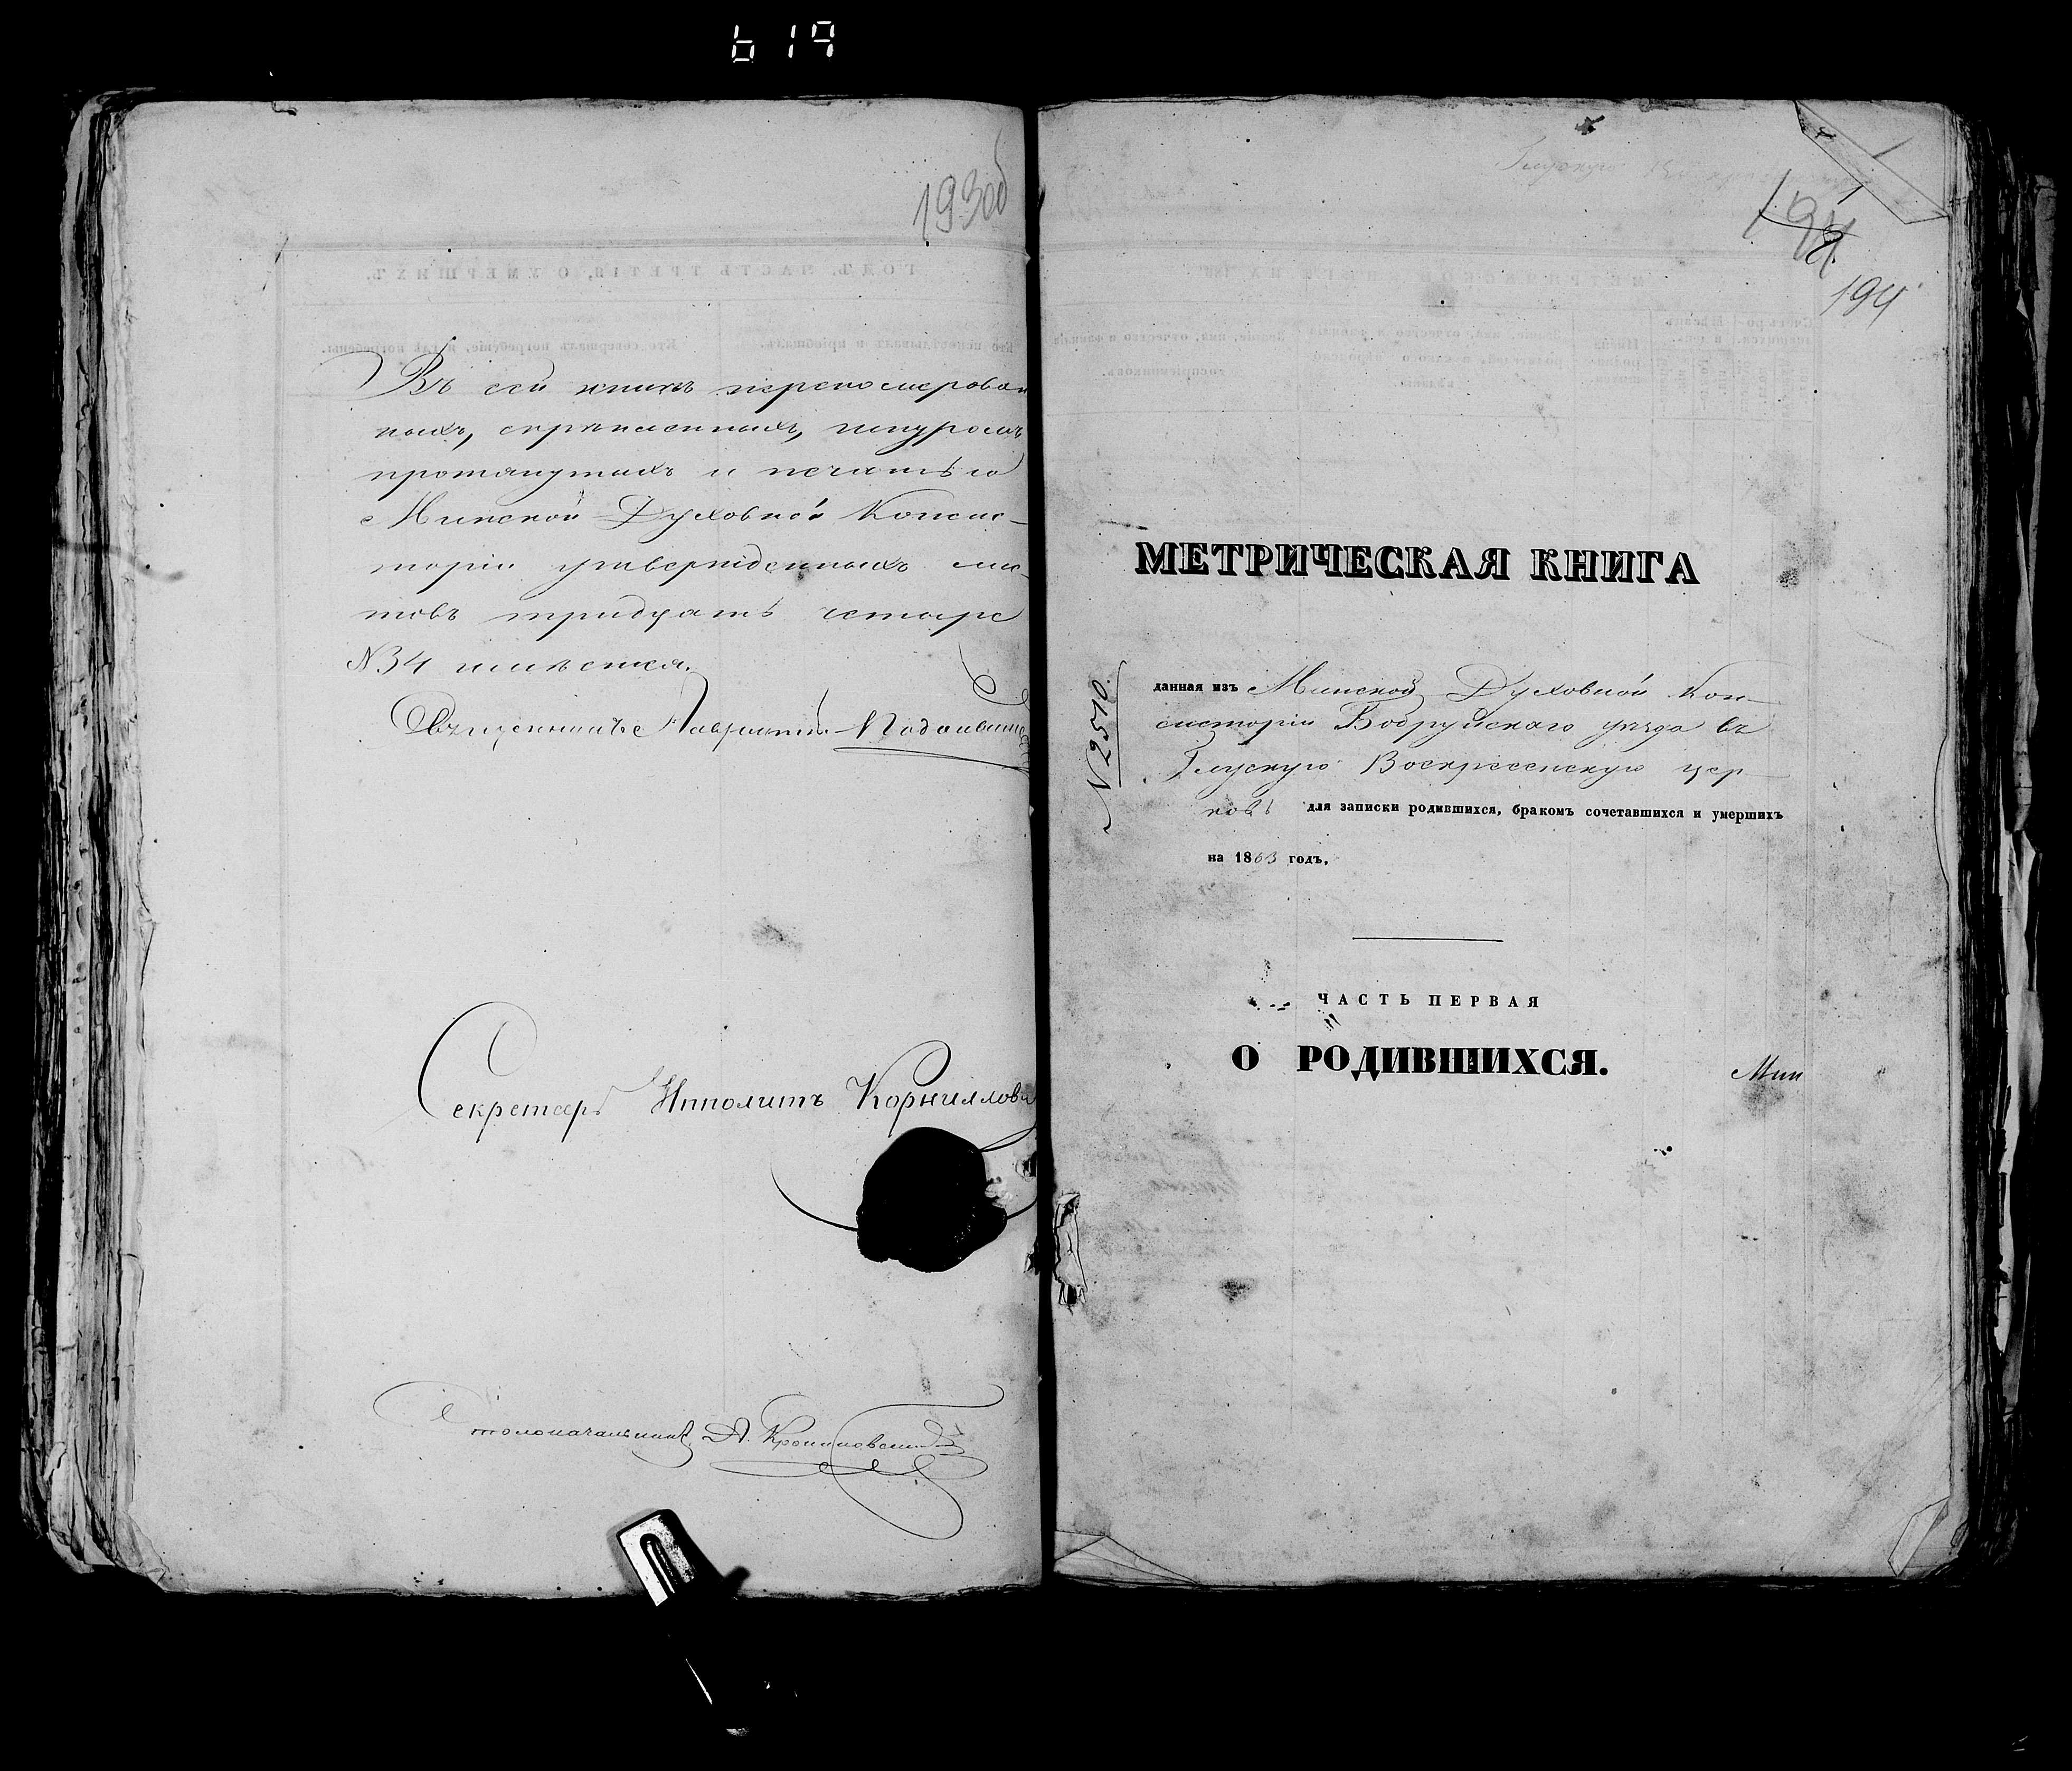 619
193об
Въ сей книгѣ перенумерован
ныхъ, скрѣпленныхъ, шнуромъ
протянутыхъ и печатью
Минской Духовной Консис-
торіи утвержденныхъ лис-
товъ тридцать четыре
№34 имѣется.
Священникъ Лаврентій
Секретарь Ипполитъ Корнилловъ
Столоначальникъ
194
194
№2510.
МЕТРИЧЕСКАЯ КНИГА
данная изъ Минской Духовной Кон-
систоріи Бобруйскаго уѣзда въ
Глускую Воскресенскую цер-
ковь для записки родившихся, бракомъ сочетавшихся и умершихъ
на 1863 годъ.
ЧАСТЬ ПЕРВАЯ
О РОДИВШИХСЯ.
Мин